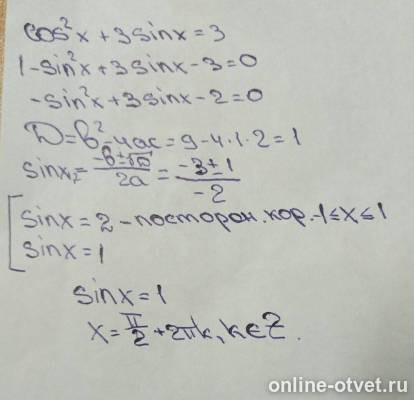 cos²x + 3sinx = 3
1 - sin²x + 3sinx - 3 = 0
- sin²x + 3sinx - 2 = 0
D = b² - 4ac = 9 - 4·1·2 = 1
sinx₁,₂ = (-b±√D)/2a = (-3±1)/-2
[ sinx = 2 - посторон. кор. -1≤x≤1
sinx = 1
sinx = 1
x = π/2 + 2πk, k∈Z.
online-otvet.ru